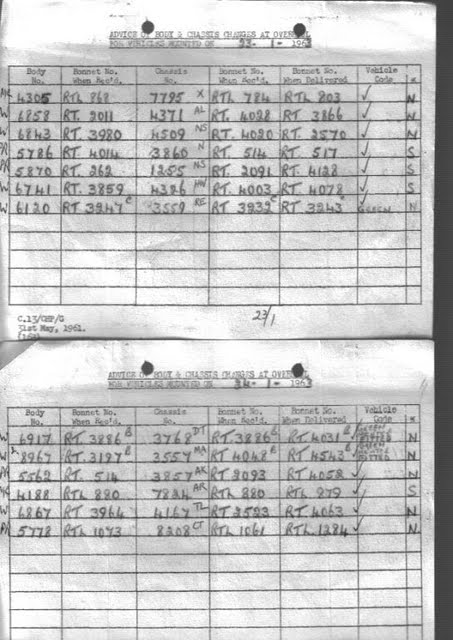 ADVICE OF BODY & CHASSIS CHANGES AT OVERHAUL
FOR VEHICLES MOUNTED ON 23 - 1 - 1963
Body No. Bonnet No. When Rec'd. Chassis No. Bonnet No. When Rec'd. Bonnet No. When Delivered Vehicle Code *
PK 4305 RTL 868 7795 X RTL 784 RTL 803 ✓ N
W 6858 RT. 2011 4371 AL RT. 4028 RT 3866 ✓ N
W 6843 RT. 3980 4509 NS RT. 4020 RT 2570 ✓ N
PR 5786 RT. 4014 3860 N RT. 514 RT. 517 ✓ S
PR 5870 RT. 262 1255 NS RT. 2091 RT 4128 ✓ S
W 6741 RT. 3859 4326 HW RT. 4003 RT 4078 ✓ S
W 6120 RT 3247 C 3559 RE RT 3232 C RT 3243 C GREEN N
C.13/GHP/G
31st May, 1961.
23/1
ADVICE OF BODY & CHASSIS CHANGES AT OVERHAUL
FOR VEHICLES MOUNTED ON 24 - 1 - 1963
Body No. Bonnet No. When Rec'd. Chassis No. Bonnet No. When Rec'd. Bonnet No. When Delivered Vehicle Code *
W 6917 RT. 3886 B 3768 DT RT. 3886 B RT 4031 B GREEN N
8967 RT. 3197 B 3557 MA RT 4048 B RT 4543 B GREEN N
5562 RT. 514 3857 AK RT 2093 RT 4058 ✓ N
4188 RTL 880 7824 AR RTL 880 RTL 879 ✓ S
W 6867 RT 3964 4167 TL RT 2523 RT 4063 ✓ N
PR 5778 RTL 1073 8208 CT RTL 1061 RTL 1284 ✓ N